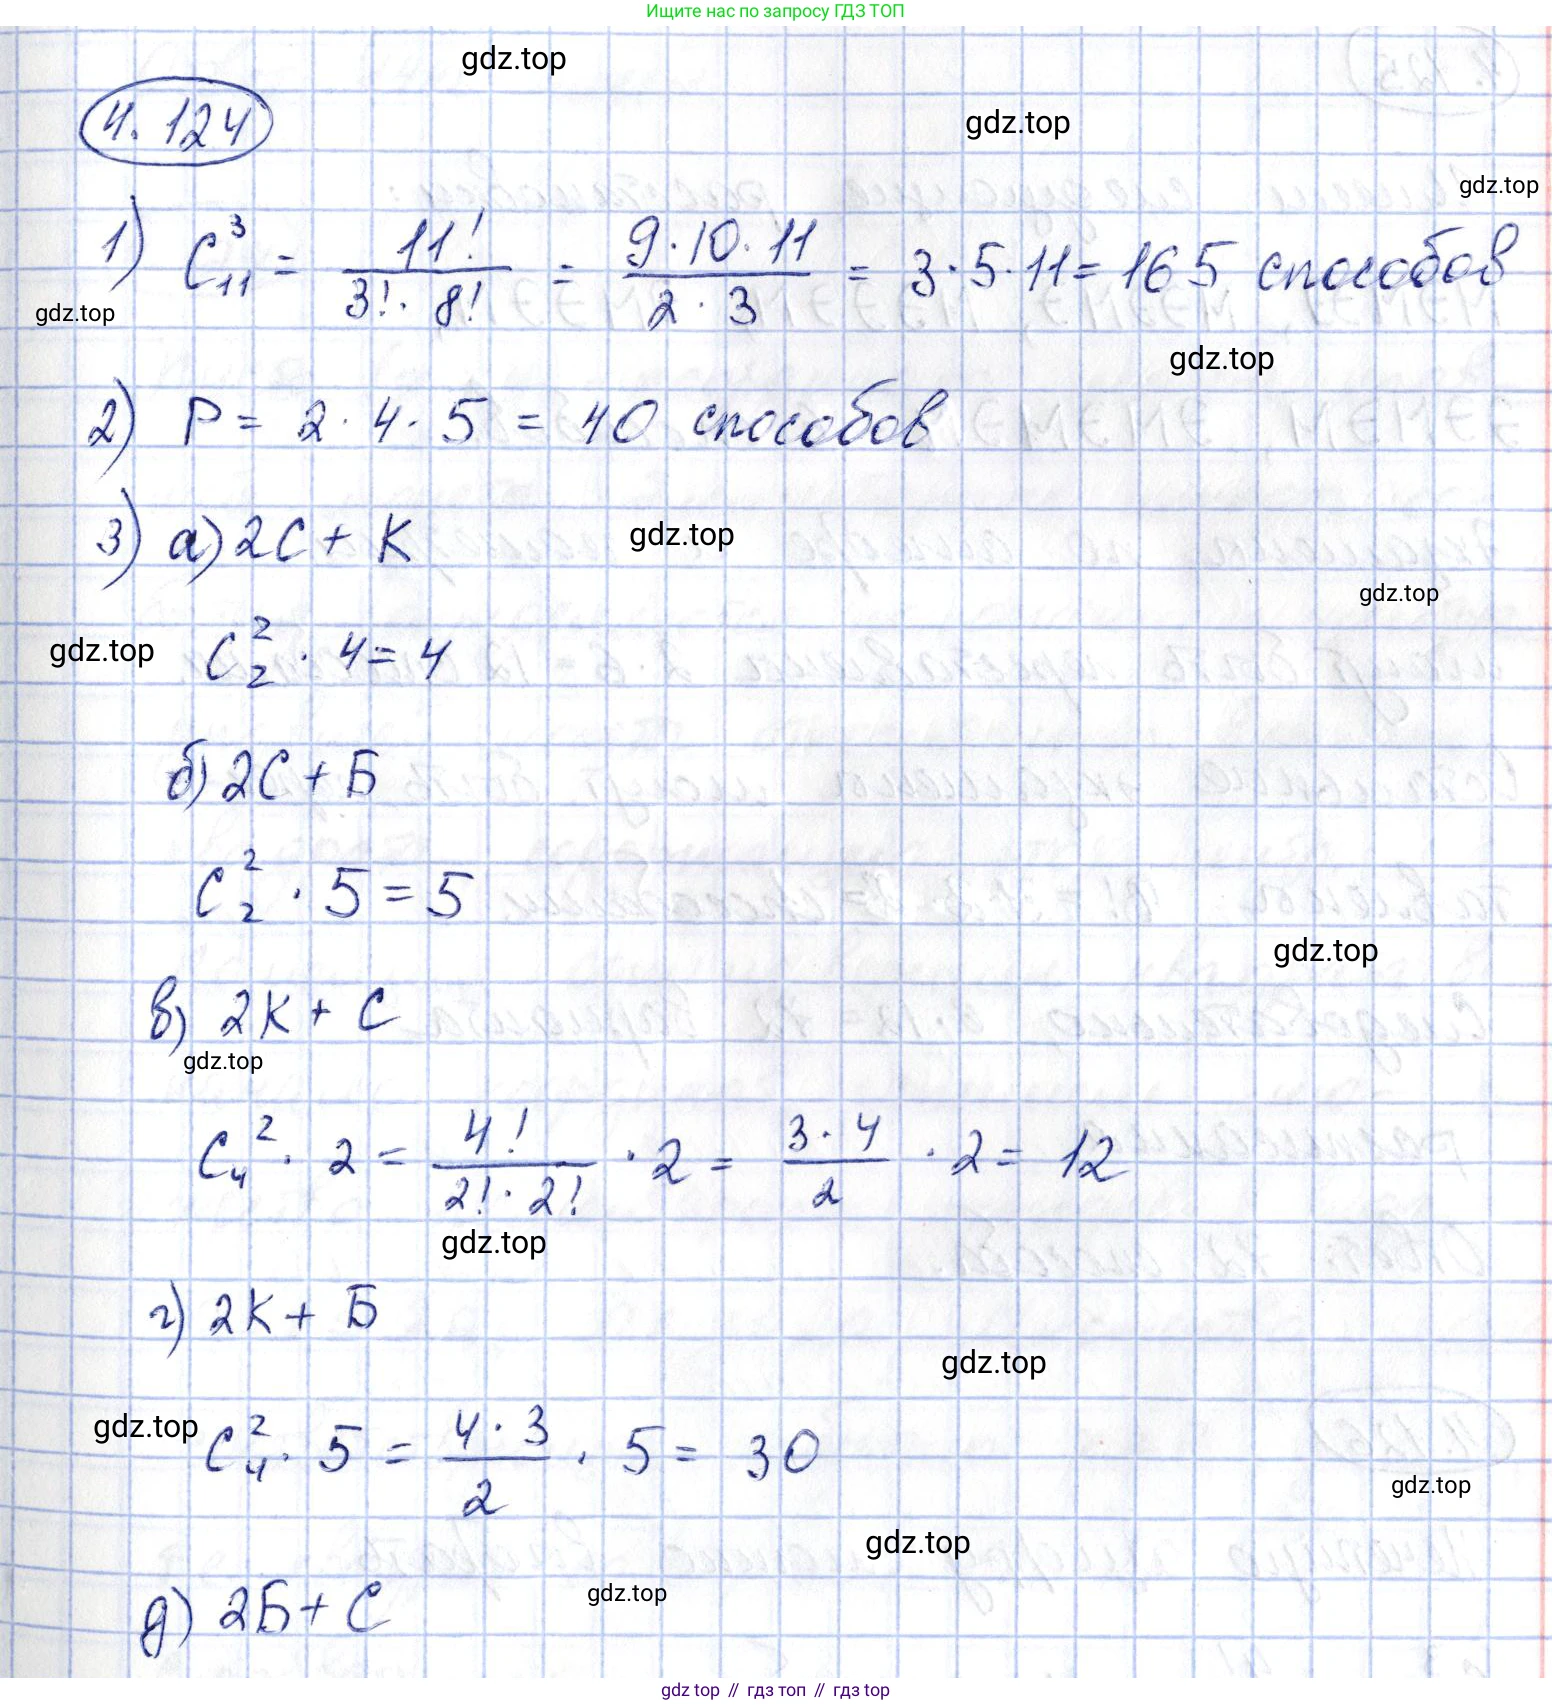 Ищите нас по запросу ГДЗ ТОП
gdz.top
4.124
gdz.top
gdz.top
1) C₁₁³ = 11!/(3!·8!) = (9·10·11)/(2·3) = 3·5·11 = 165 способов
gdz.top
gdz.top
2) P = 2·4·5 = 40 способов
3) а) 2С + К
gdz.top
gdz.top
gdz.top
C₂² · 4 = 4
б) 2С + Б
C₂² · 5 = 5
gdz.top
в) 2К + С
gdz.top
C₄² · 2 = 4!/(2!·2!) · 2 = (3·4)/2 · 2 = 12
gdz.top
г) 2К + Б
gdz.top
gdz.top
C₄² · 5 = (4·3)/2 · 5 = 30
gdz.top
gdz.top
gdz.top
д) 2Б + С
gdz top // гдз топ // гдз top